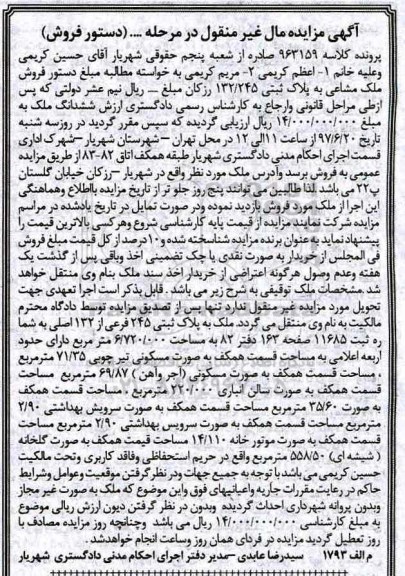 آگهی مزایده مال غیر منقول در مرحله .... (دستور فروش)
پرونده کلاسه ۹۶۳۱۵۹ صادره از شعبه پنجم حقوقی شهریار آقای حسین کریمی
وعلیه خانم ۱- اعظم کریمی ۲- مریم کریمی به خواسته مطالبه مبلغ دستور فروش
ملک مشاعی به پلاک ثبتی ۱۳۲/۲۴۵ رزکان مبلغ ... ریال نیم عشر دولتی که پس
ازطی مراحل قانونی وارجاع به کارشناس رسمی دادگستری ارزش ششدانگ ملک به
مبلغ ۱۴/۰۰۰/۰۰۰/۰۰۰ ریال ارزیابی گردیده که سپس مقرر گردید در روزسه شنبه
تاریخ ۹۷/۶/۲۰ از ساعت ۱۱الی ۱۲ در محل تهران –شهرستان شهریار –شهرک اداری
قسمت اجرای احکام مدنی دادگستری شهریار طبقه همکف اتاق ۸۲-۸۳ از طریق مزایده
عمومی به فروش برسد وآدرس ملک مورد نظر واقع در شهریار –رزکان خیابان گلستان
پ۲۲ می باشد .لذا طالبین می توانند پنج روز جلو تر از تاریخ مزایده بااطلاع وهماهنگی
این اجرا از ملک مورد فروش بازدید نموده ودر صورت تمایل در تاریخ یادشده در مراسم
مزایده شرکت نمایند مزایده از قیمت پایه کارشناسی شروع وهرکسی بالاترین قیمت را
پیشنهاد نماید به عنوان برنده مزایده شناسخته شده و۱۰درصد از کل قیمت مبلغ فروش
فی المجلس از خریدار به صورت نقدی یا چک تضمینی اخذ وباقی پس از گذشت یک
هفته وعدم وصول هرگونه اعتراضی از خریدار اخذ سند ملک بنام وی منتقل خواهد
شد .مشخصات ملک توقیفی به شرح زیر می باشد . قابل ذکر است اجرا تعهدی جهت
تحویل مورد مزایده غیر منقول ندارد تنها پس از تصدیق مزایده توسط دادگاه محترم
مالکیت به نام وی منتقل می گردد.ملک به پلاک ثبتی ۲۴۵ فرعی از ۱۳۲ اصلی به شما
ره ثبت ۱۱۶۸۵ صفحه ۱۶۳ دفتر ۸۲ به مساحت ۶/۷۲۰/۰۰۰ متر مربع دارای حدود
اربعه اعلامی به مساحت قسمت همکف به صورت مسکونی تیر چوبی ۷۱/۳۵ مترمربع
، مساحت قسمت همکف به صورت مسکونی (آجر وآهن ) ۶۹/۸۲ مترمربع مساحت
قسمت همکف به صورت سالن انباری ۲۲۰/۰۰ مترمربع ، مساحت قسمت همکف
به صورت ۳۵/۶۰ مترمربع مساحت قسمت همکف به صورت سرویش بهداشتی ۲/۹۰
مترمربع مساحت قسمت همکف به صورت سرویس بهداشتی ۲/۹۰ مترمربع مساحت
قسمت همکف به صورت موتور خانه ۱۴/۱۱۰ مساحت قیمت همکف به صورت گلخانه
( شیشه ای) ۵۵۸/۵۰ مترمربع واقع در حریم استحفاظی وفاقد کاربری وتحت مالکیت
حسین کریمی می باشد با توجه به جمیع جهات ودر نظر گرفتن موقعیت وعوامل وشرایط
حاکم در رعایت مقررات جاریه واعیانیهای فوق واین موضوع که ملک به صورت غیر مجاز
وبدون پروانه شهرداری احداث گردیده وبدون در نظر گرفتن دیون ارزش ریالی موضوع
به مبلغ کارشناسی ۱۴/۰۰۰/۰۰۰/۰۰۰ ریال می باشد وچنانچه روز مزایده مصادف با
روز تعطیل گردید مزایده در فردای همان روز وساعت انجام خواهدشد .
م الف ۱۷۹۳ سیدرضا عابدی –مدیر دفتر اجرای احکام مدنی دادگستری شهریار